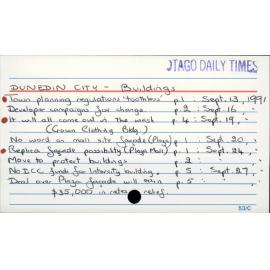 OTAGO DAILY TIMES
DUNEDIN CITY - Buildings
Town planning regulations 'toothless' p.1 : Sept. 13, 1991
Developer campaigns for change. p.2 : Sept. 16 "
It will all come out in the wash p.4 : Sept. 19, "
(Crown Clothing Bldg.)
No word on mail site façade (Plaza) p.1 : Sept. 20, "
Replica façade possibility (Plaza Mail) p.1 : Sept. 24, "
Move to protect buildings p.2 : " "
No DCC funds for Intensity building p.5 : Sept. 27, "
Deal over Plaza façade will earn p.5 : " "
$35,000 in rates relief.